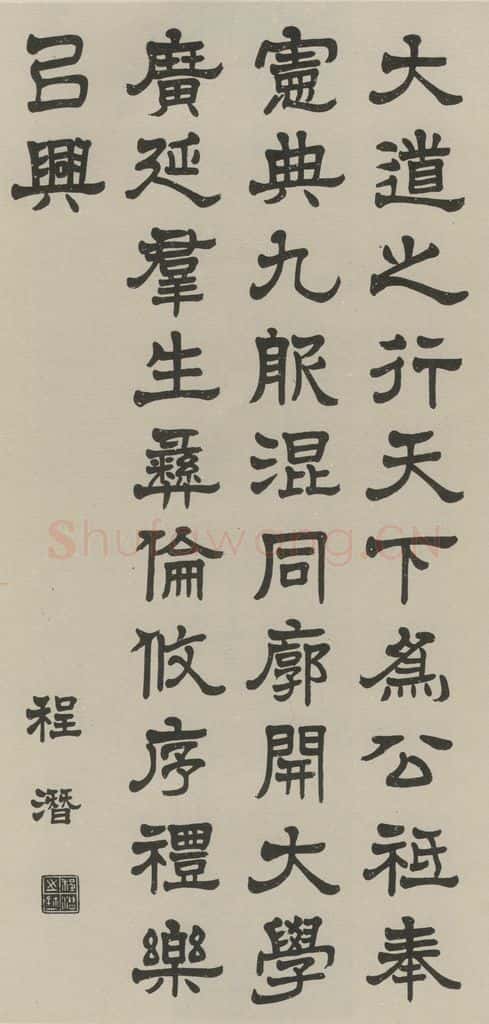 大道之行天下為公祗奉
憲典九服混同廓開大學
廣延羣生彝倫攸序禮樂
㠯興
程潛
Shufawang.CN